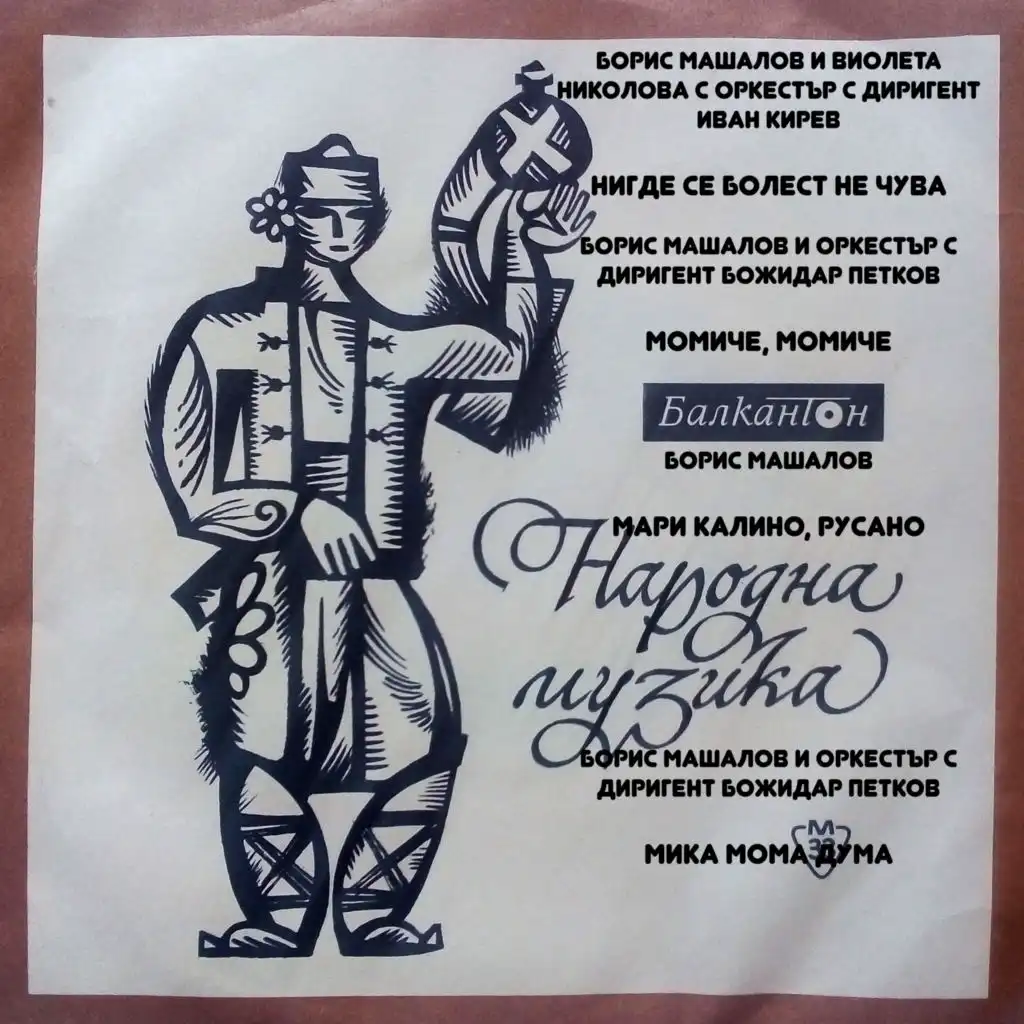 БОРИС МАШАЛОВ И ВИОЛЕТА
НИКОЛОВА С ОРКЕСТЪР С ДИРИГЕНТ
ИВАН КИРЕВ
НИГДЕ СЕ БОЛЕСТ НЕ ЧУВА
БОРИС МАШАЛОВ И ОРКЕСТЪР С
ДИРИГЕНТ БОЖИДАР ПЕТКОВ
МОМИЧЕ, МОМИЧЕ
Балкантон
БОРИС МАШАЛОВ
МАРИ КАЛИНО, РУСАНО
Народна
музика
БОРИС МАШАЛОВ И ОРКЕСТЪР С
ДИРИГЕНТ БОЖИДАР ПЕТКОВ
М
33
МИКА МОМА ДУМА